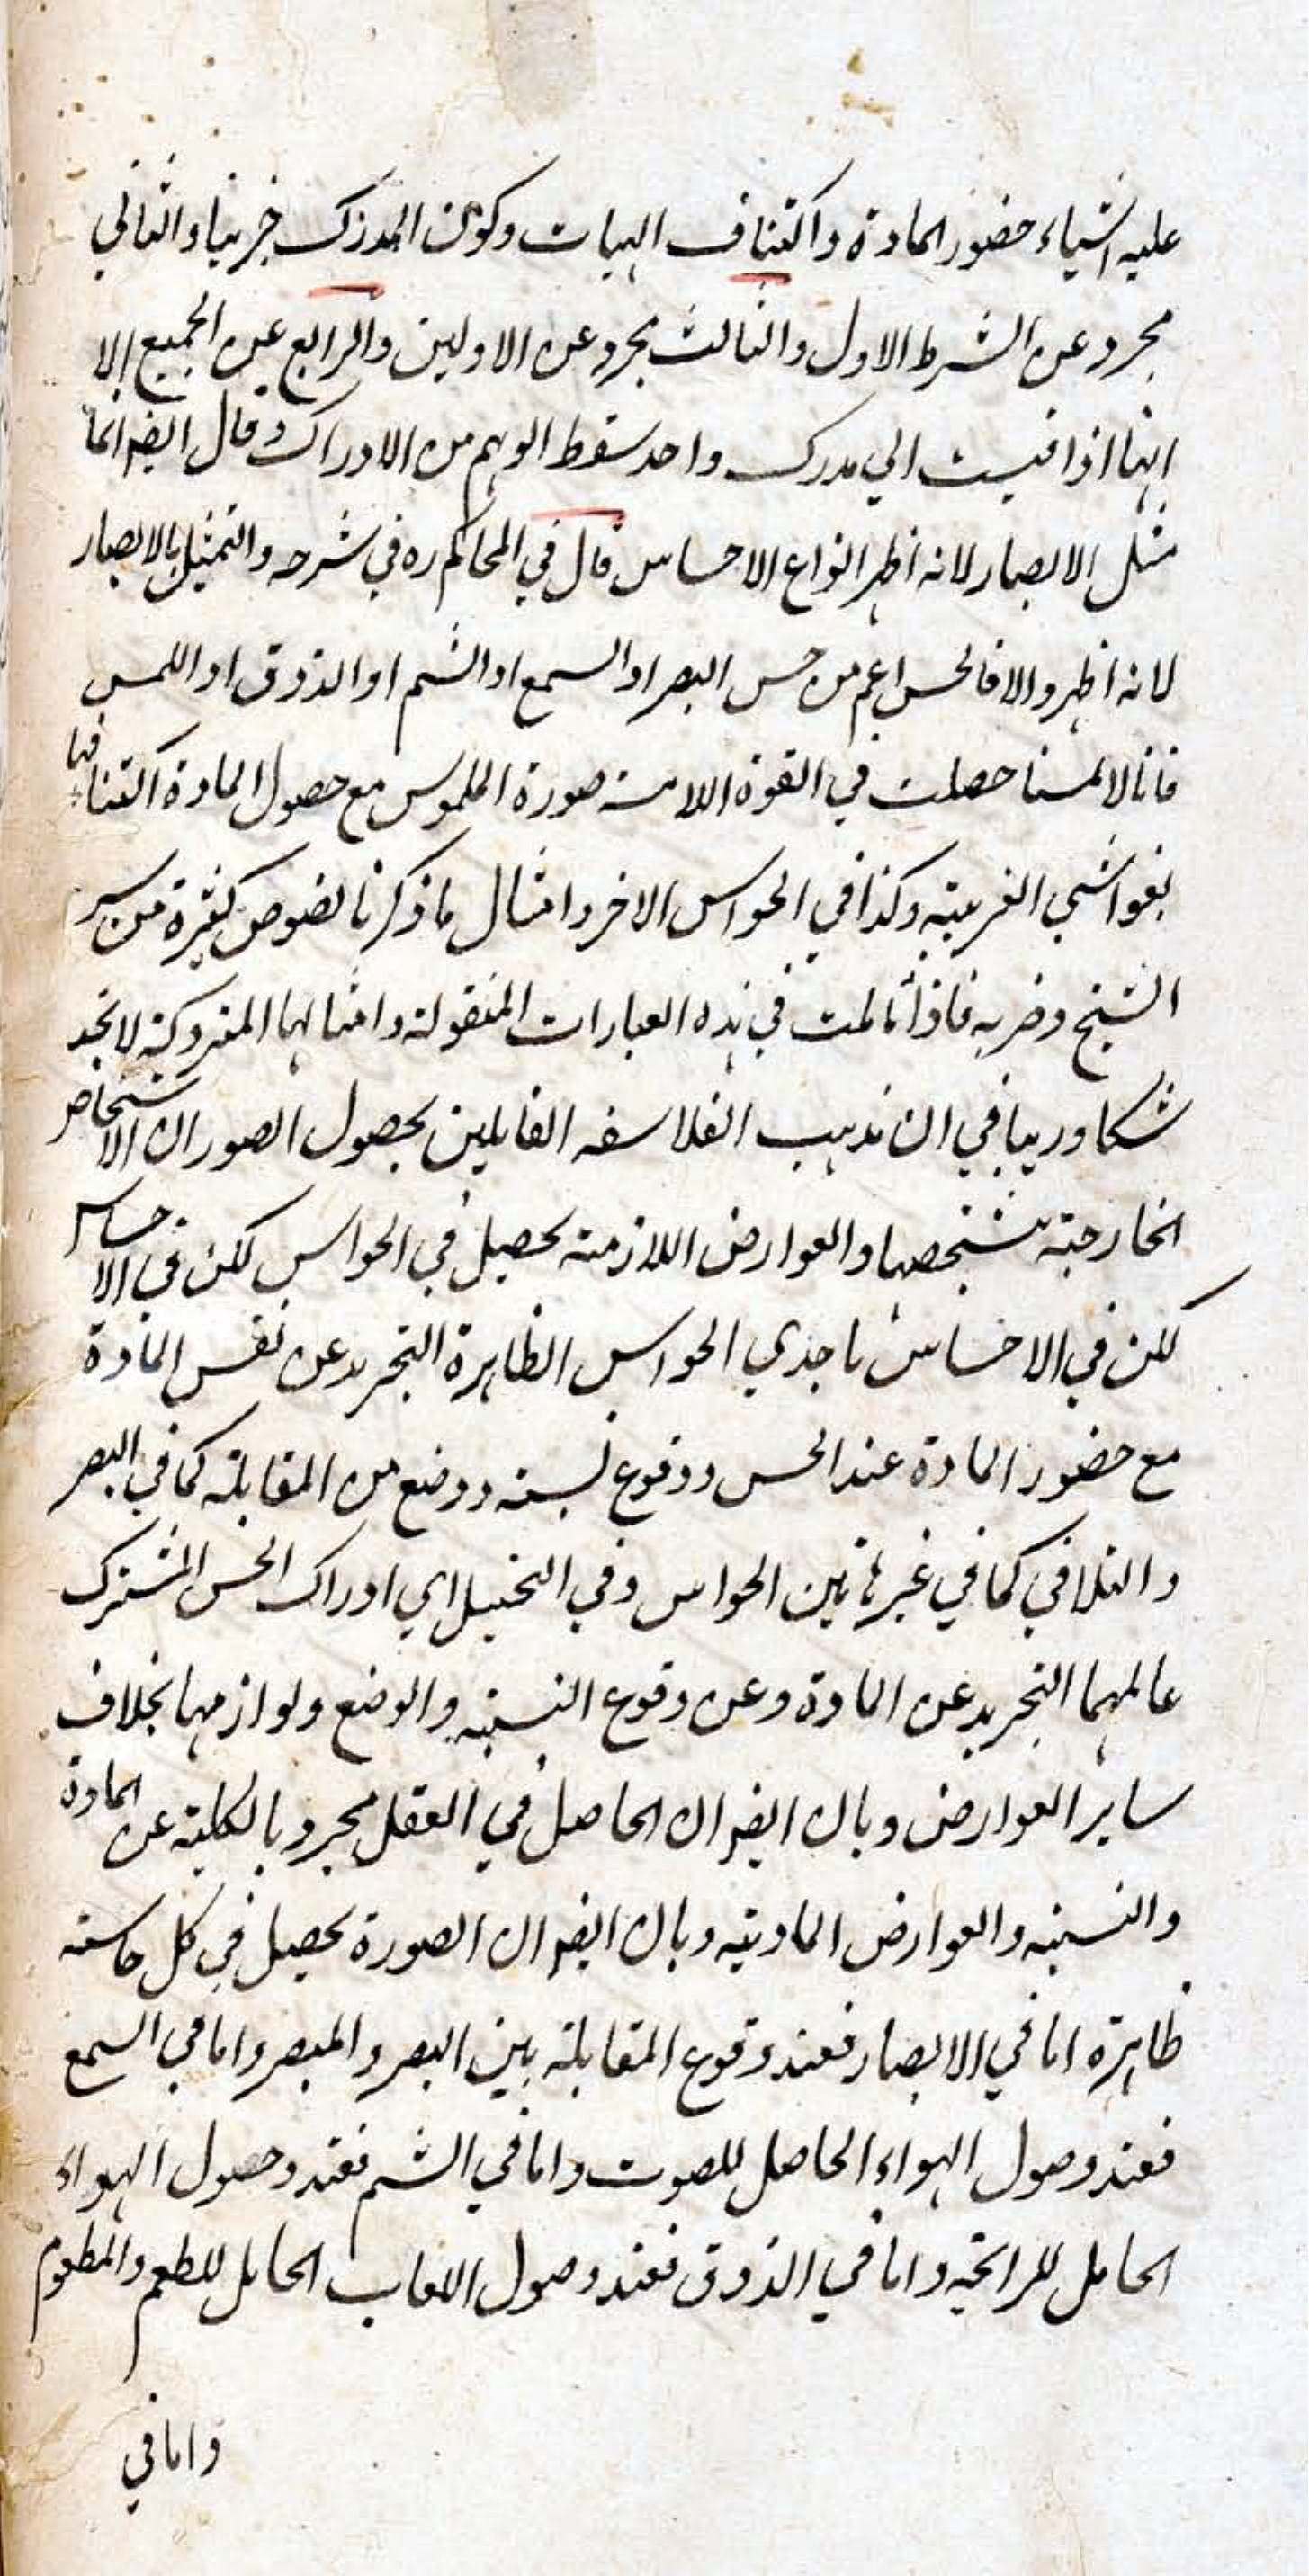 عليه اشياء حضور المادة واكتناف الهيات وكون المدرك جزييا والثاني
مجرد عن الشرط الاول والثالث مجرد عن الاولين والرابع عن الجميع الا
انها اذا قيست الي مدرك واحد سقط الوهم من الادراك وقال ايضا انما
مثل الابصار لانه اظهر انواع الاحساس قال في المحاكم ره في شرحه والتمثيل بالابصار
لانه اظهر والا فالحس اعم من حس البصر او السمع او الشم او الذوق او اللمس
فانا لا لمسنا حصلت في القوة اللامسة صورة الملموس مع حصول المادة اكتنافها
بغواشي الغريبة وكذا في الحواس الاخر وامثال ما ذكرنا نصوص كثيرة من
الشيخ وضربه فاذا تاملت في هذه العبارات المنقولة وامثالها المتروكة لا تجد
شكا وريبا في ان مذهب الفلاسفه القايلين بحصول الصور ان الاشخاص
الخارجية بتشخصها والعوارض اللازمة يحصل في الحواس لكن في الاحساس
لكن في الاحساس باحدي الحواس الظاهرة التجريد عن نفس المادة
مع حضور المادة عند الحس ووقوع نسبة ووضع من المقابلة كما في البصر
والتلاقي كما في غيرها بين الحواس وفي التخيل اي ادراك الحس المشترك
عالمهما التجريد عن المادة وعن وقوع النسبة والوضع ولوازمهما بخلاف
ساير العوارض وبان ايضا ان الحاصل في العقل مجرد بالكلية عن المادة
والنسبة والعوارض المادية وبان ايضا ان الصورة يحصل في كل حاسة
ظاهرة اما في الابصار فعند وقوع المقابلة بين البصر والمبصر واما في السمع
فعند وصول الهواء الحاصل للصوت واما في الشم فعند وصول الهواء
الحامل للرايحة واما في الذوق فعند وصول اللعاب الحامل للطعم والمطعوم
واما في